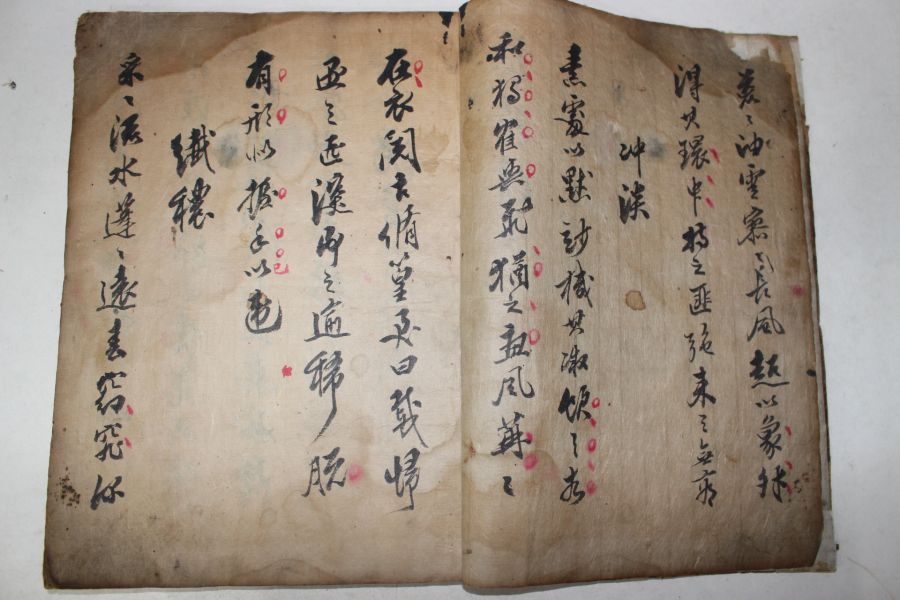 荒〻油雲寥〻長風超以象外
得其環中持之匪強來之無窮
冲淡
素處以默妙機其微飮之太
和獨崔與飛猶之惠風苒〻
在衣閱音脩篁美曰載歸
遇之匪深即之逾稀脫
有形似握手以違
已
纖穠
采〻流水蓬〻遠春窈窕深